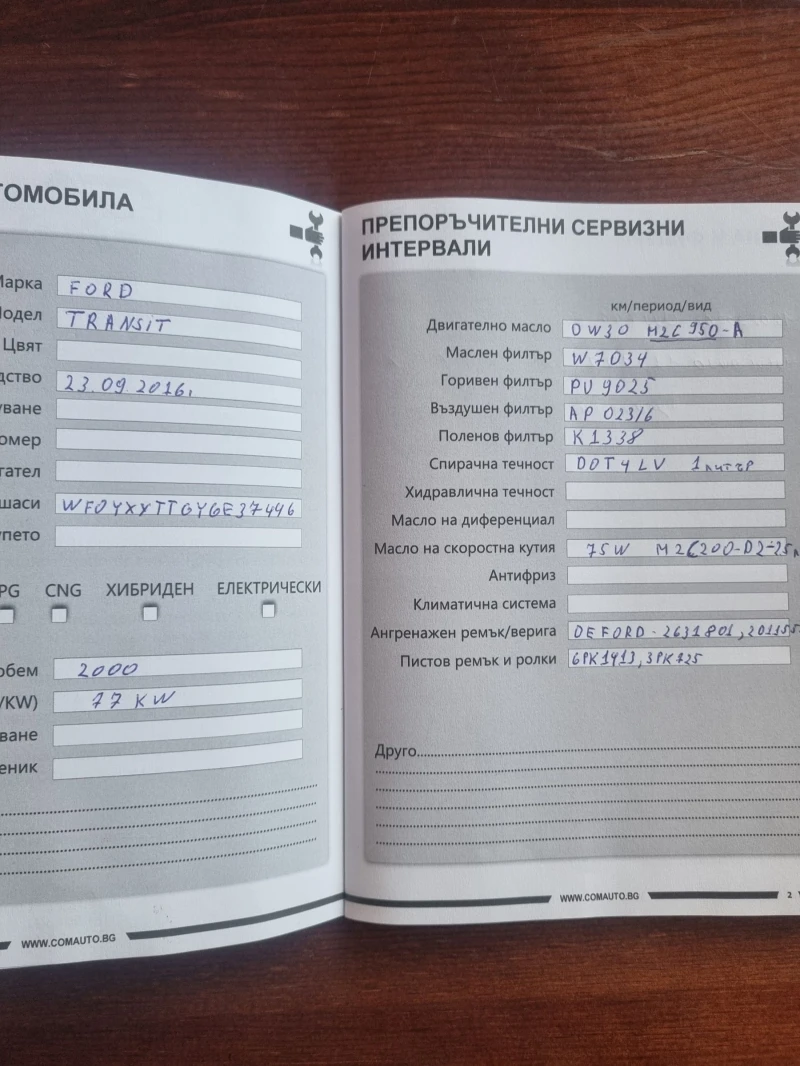 ТОМОБИЛА
Марка FORD
Модел TRANSiT
Цвят
дство 23.09.2016г
уване
омер
гател
шаси WF0YXXTTGYGE37446
упето
PG CNG ХИБРИДЕН ЕЛЕКТРИЧЕСКИ
обем 2000
/KW) 77 KW
ване
еник
WWW.COMAUTO.BG
ПРЕПОРЪЧИТЕЛНИ СЕРВИЗНИ
ИНТЕРВАЛИ
км/период/вид
Двигателно масло 0W30 M2C 950-A
Маслен филтър W7034
Горивен филтър PU 9025
Въздушен филтър AP 023/6
Поленов филтър K1338
Спирачна течност DOT4LV 1литър
Хидравлична течност
Масло на диференциал
Масло на скоростна кутия 75W M2C200-D2-25л
Антифриз
Климатична система
Ангренажен ремък/верига DEFORD-2631801,201155
Пистов ремък и ролки 6PK1413,3PK725
Друго
WWW.COMAUTO.BG 2